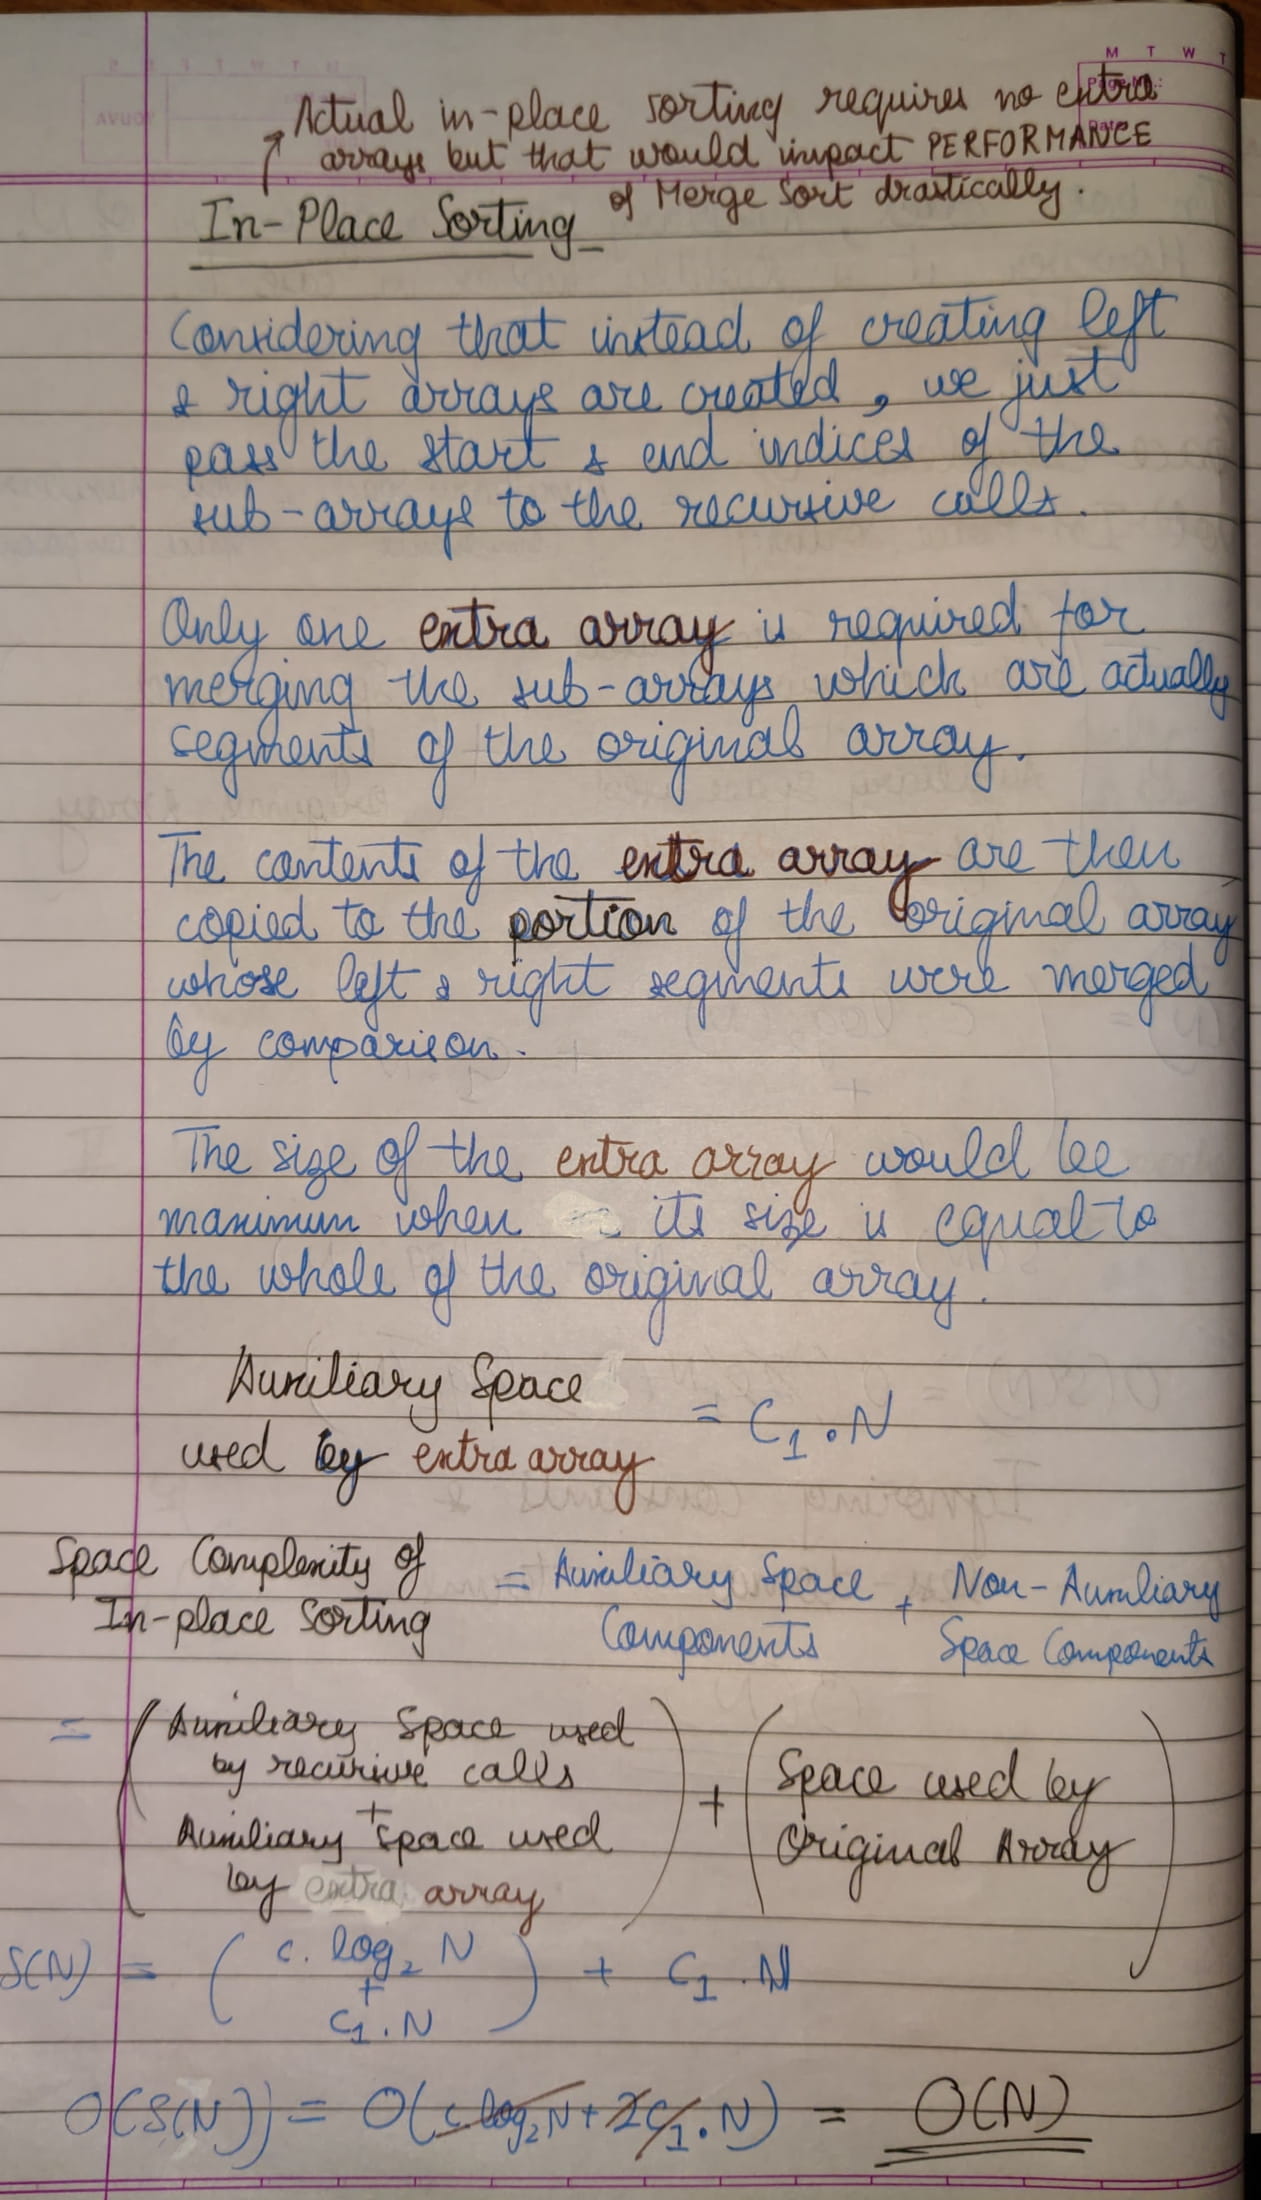 M T W T
Page No.:
Date:
YOUVA
Actual in-place sorting requires no extra
arrays but that would impact PERFORMANCE
of Merge Sort drastically.
In-Place Sorting
Considering that instead of creating left
& right arrays are created, we just
pass the start & end indices of the
sub-arrays to the recursive calls.
Only one extra array is required for
merging the sub-arrays which are actually
segments of the original array.
The contents of the extra array are then
copied to the portion of the original array
whose left & right segments were merged
by comparison.
The size of the extra array would be
maximum when its size is equal to
the whole of the original array.
Auxiliary Space
used by extra array = C₁.N
Space Complexity of
In-place Sorting = Auxiliary Space Components + Non-Auxiliary Space Components
= (Auxiliary Space used
by recursive calls
+
Auxiliary space used
by extra array) + (Space used by
Original Array)
S(N) = (c. log₂ N
+
C₁.N) + C₁.N
O(S(N)) = O(c log₂N + 2C₁.N) = O(N)